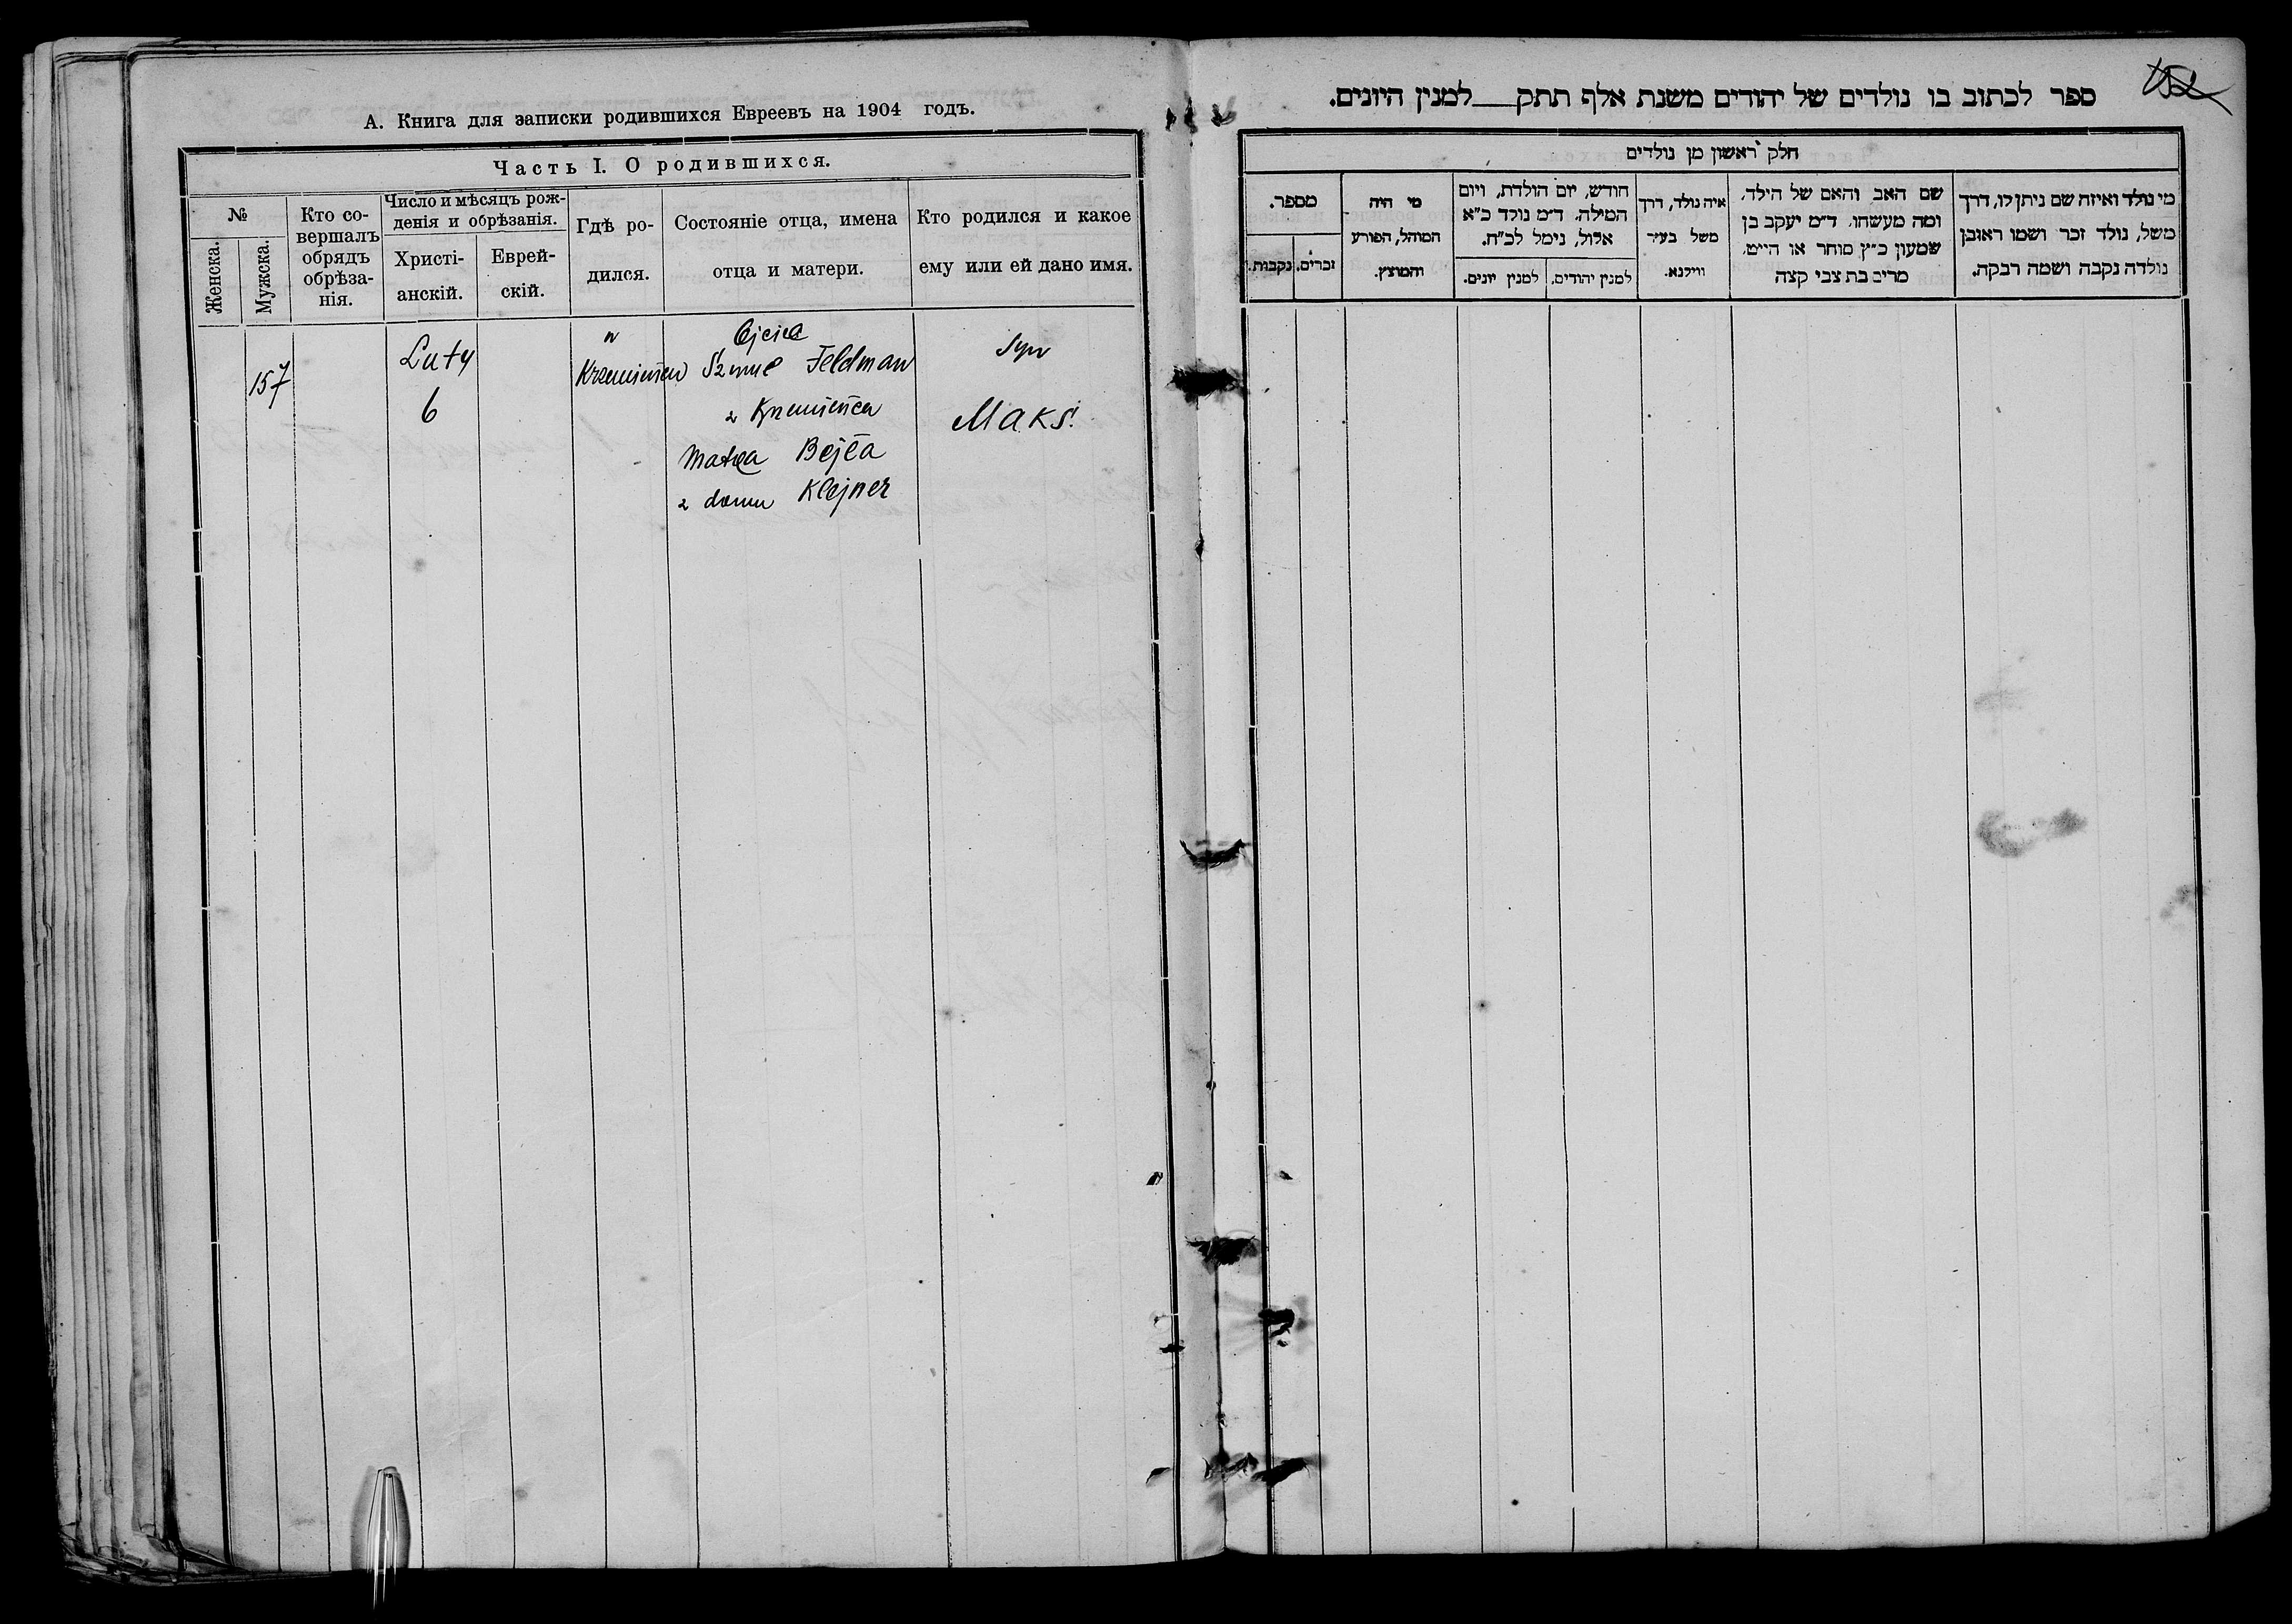 А. Книга для записки родившихся Евреевъ на 1904 годъ.
Часть I. О родившихся.
№
Женска.
Мужска.
Кто со-
вершалъ
обрядъ
обрѣза-
нія.
Число и мѣсяцъ рож-
денія и обрѣзанія.
Христі-
анскій.
Еврей-
скій.
Гдѣ ро-
дился.
Состояніе отца, имена
отца и матери.
Кто родился и какое
ему или ей дано имя.
157
Luty
6
w
Krzemieńcu
Ojciec
Szmul Feldman
z Krzemieńca
Matka Bejła
z domu Klejner
Syn
Maks.
ספר לכתוב בו נולדים של יהודים משנת אלף תתק למנין היונים.
חלק ראשון מן נולדים
מספר.
נקבות.
זכרים.
מי היה
המוהל, הפורע
והמוצץ.
חודש, יום הולדת, ויום
המילה. ד"מ נולד כ"א
אלול, נימל לכ"ח.
למנין יונים.
למנין יהודים.
איה נולד, דרך
משל בעיר
ווילנא.
שם האב והאם של הילד.
ומה מעשהו. ד"מ יעקב בן
שמעון כ"ץ סוחר או חייט.
מרים בת צבי קצה
מי נולד ואיזה שם ניתן לו, דרך
משל, נולד זכר ושמו ראובן
נולדה נקבה ושמה רבקה.